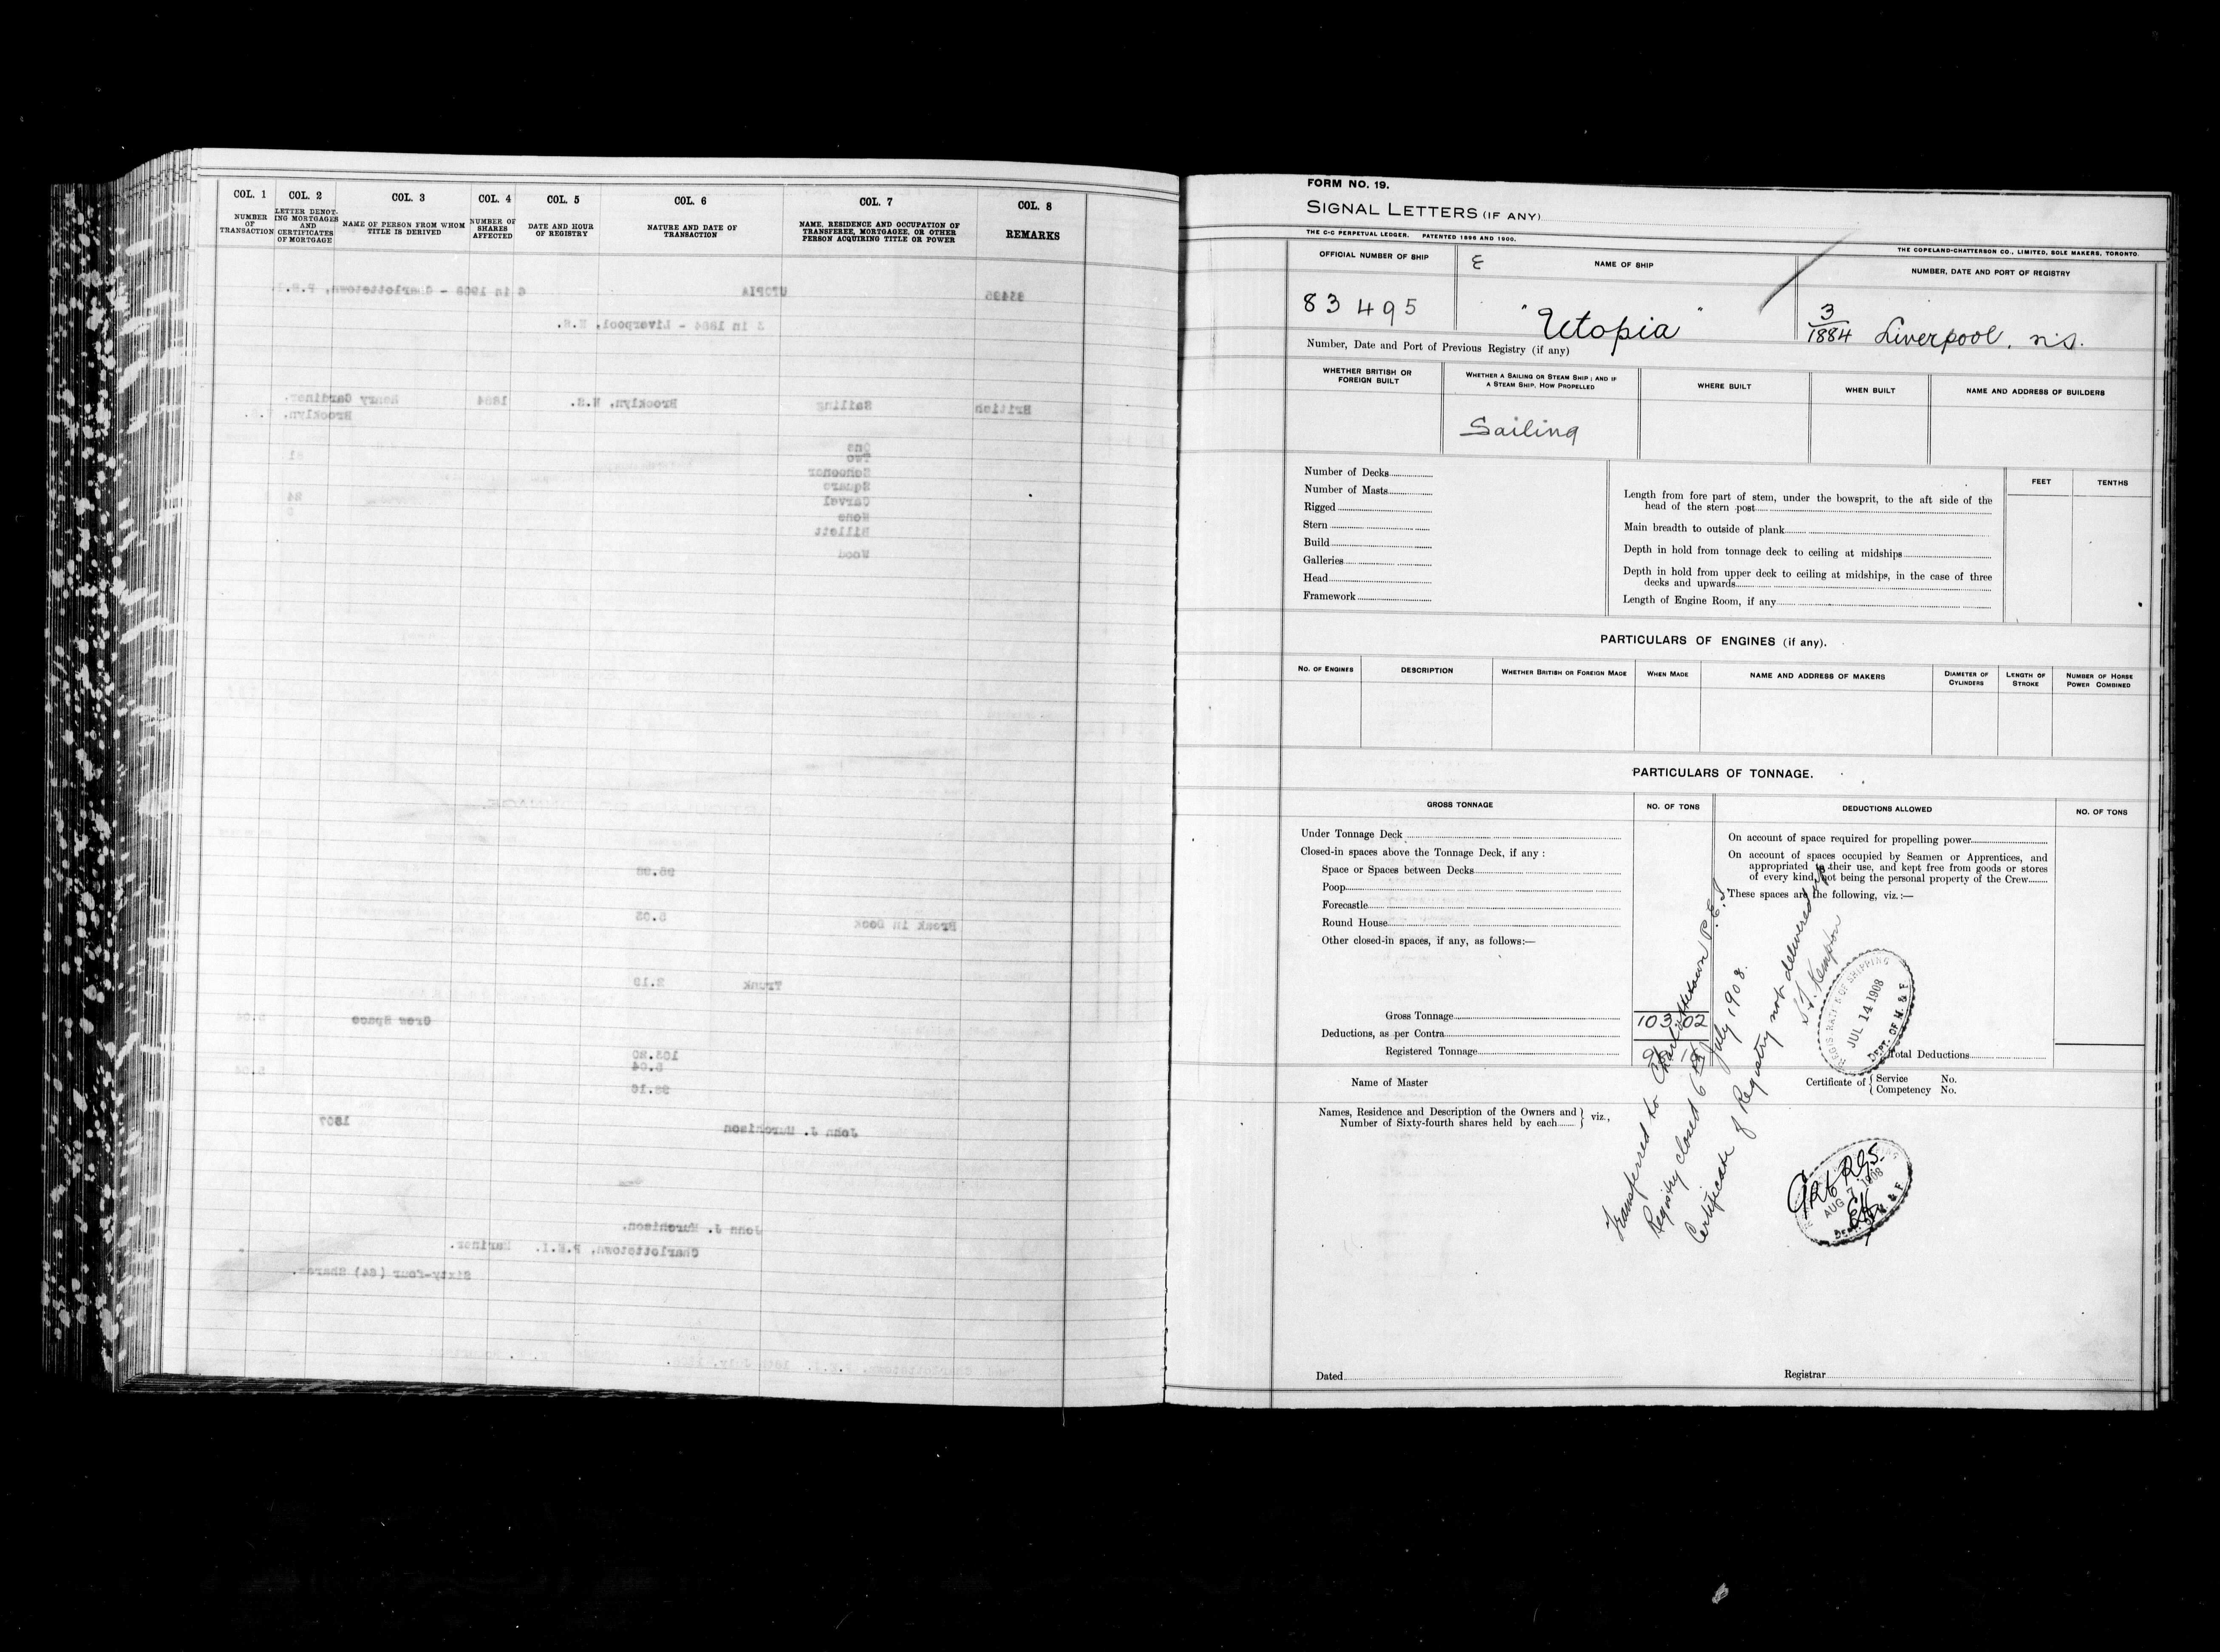 COL. 1 COL. 2 COL. 3 COL. 4 COL. 5 COL. 6 COL. 7 COL. 8
NUMBER OF TRANSACTION
LETTER DENOTING MORTGAGES AND CERTIFICATES OF MORTGAGE
NAME OF PERSON FROM WHOM TITLE IS DERIVED
NUMBER OF SHARES AFFECTED
DATE AND HOUR OF REGISTRY
NATURE AND DATE OF TRANSACTION
NAME, RESIDENCE AND OCCUPATION OF TRANSFEREE, MORTGAGEE, OR OTHER PERSON ACQUIRING TITLE OR POWER
REMARKS
83495 UTOPIA 6 in 1908 - Charlottetown, P.E.I.
3 in 1884 - Liverpool, N.S.
British Sailing Brooklyn, N.S. 1884 Henry Gardiner.
Brooklyn, N.S.
One
Two
Schooner
Square
Carvel
None
Billett
Wood
Break in Deck 5.03
Trunk 2.19
Crew Space 5.04
103.20
5.04
98.16
John J. Murchison
John J. Murchison.
Charlottetown, P.E.I. Mariner.
Sixty-four (64) Shares.
FORM NO. 19.
SIGNAL LETTERS (IF ANY)
THE C-C PERPETUAL LEDGER. PATENTED 1896 AND 1900.
THE COPELAND-CHATTERSON CO., LIMITED, SOLE MAKERS, TORONTO.
OFFICIAL NUMBER OF SHIP
NAME OF SHIP
NUMBER, DATE AND PORT OF REGISTRY
83495 "Utopia" 3/1884 Liverpool, n.s.
Number, Date and Port of Previous Registry (if any)
WHETHER BRITISH OR FOREIGN BUILT
WHETHER A SAILING OR STEAM SHIP; AND IF A STEAM SHIP, HOW PROPELLED
WHERE BUILT
WHEN BUILT
NAME AND ADDRESS OF BUILDERS
Sailing
Number of Decks
Number of Masts
Rigged
Stern
Build
Galleries
Head
Framework
FEET TENTHS
Length from fore part of stem, under the bowsprit, to the aft side of the
head of the stern post
Main breadth to outside of plank
Depth in hold from tonnage deck to ceiling at midships
Depth in hold from upper deck to ceiling at midships, in the case of three
decks and upwards
Length of Engine Room, if any
PARTICULARS OF ENGINES (if any).
NO. OF ENGINES
DESCRIPTION
WHETHER BRITISH OR FOREIGN MADE
WHEN MADE
NAME AND ADDRESS OF MAKERS
DIAMETER OF CYLINDERS
LENGTH OF STROKE
NUMBER OF HORSE POWER COMBINED
PARTICULARS OF TONNAGE.
GROSS TONNAGE NO. OF TONS DEDUCTIONS ALLOWED NO. OF TONS
Under Tonnage Deck
Closed-in spaces above the Tonnage Deck, if any :
Space or Spaces between Decks
Poop
Forecastle
Round House
Other closed-in spaces, if any, as follows:—
Gross Tonnage 103 02
Deductions, as per Contra
Registered Tonnage
On account of space required for propelling power
On account of spaces occupied by Seamen or Apprentices, and
appropriated to their use, and kept free from goods or stores
of every kind, not being the personal property of the Crew
These spaces are the following, viz.:—
Total Deductions
Transferred to Charlottetown P.E.I
Registry closed 6th July 1908.
Certificate of Registry not delivered up
Kempton
REGISTRATION OF SHIPPING
JUL 14 1908
DEPT. OF M. & F.
Name of Master
Certificate of { Service No.
Competency No.
Names, Residence and Description of the Owners and
Number of Sixty-fourth shares held by each } viz.,
AUG 7 1908
Dated
Registrar